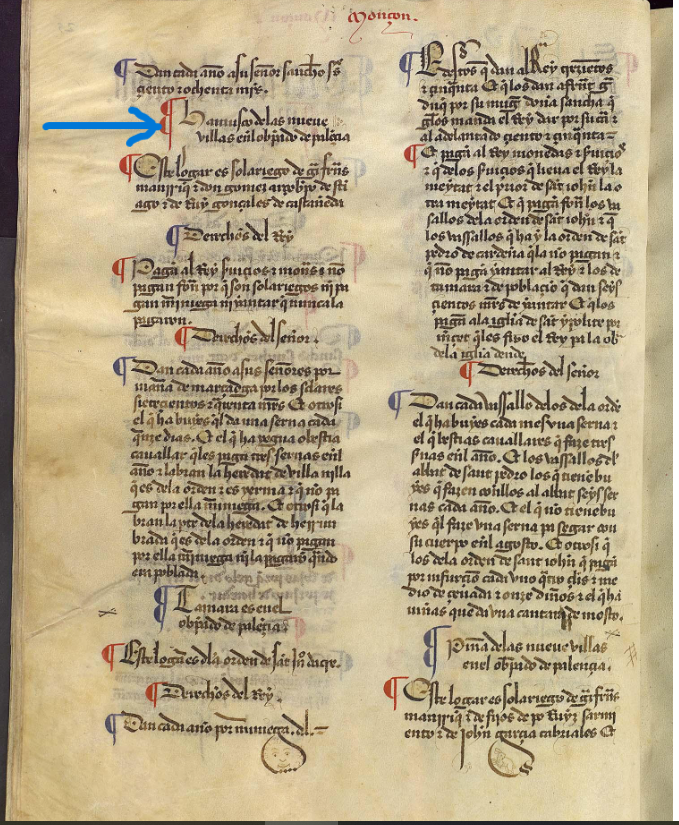 Monçon.
Dan cada año a su señor sancho ss
çento τ ochenta mrs.
Hamusco delas nueue
villas enl obpado de palẽçia
Este logar es solariego de gr̃ frrs
manrriq τ don gomes arçobpo de sti
ago τ de Ruy gonçales de castañeda
Derechos del Rey
Pagã al Rey seruiçios τ mons τ nõ
pagan fõn por q̃ son solariegos ni pa
gan miniega ni yantar q̃ nunca la
pagaron.
Derechos del señor.
Dan cada año a sus señores por
mana de marçadga por los solares
sieteçientos τ çinẽta mrs Et otrosi
el q̃ ha bueyes q̃l da vna serna cada
q̃nze dias. Et el q̃ ha yegua o bestia
cauallar q̃les pagã tres sernas enl
año τ labran la heredat de villa nilla
q̃ es dela orden τ es yerma τ q̃ nõ pa
gan por ella miniega. Et otrosi q̃ la
bran la pte dela heredat de
brada q̃ es dela orden τ q̃ nõ pagan
por ella miniega ni la pagarõ q̃ndo
era poblada.
Tamara es enel
obpado de palẽçia
Este logar es dla orden de sãt Jnõ
Derechos del Rey.
Dan cada año por miniega. dl.
Et destos q̃ dan al Rey
τ çinq̃nta Et q̃ los dan a ferrãt g̃
diaz por su mug̃ doña sancha q̃
g̃los manda el Rey dar por su cã τ
al adelantado çiento τ çinq̃nta
Et pagã al Rey monedas τ seruiçios
τ q̃ delos seruiçios q̃ lieua el Rey la
meytat τ el prior de sãt iohñ la o
tra meytat Et q̃ pagã fõn los va
sallos dela orden de sãt iohñ τ q̃
los vassallos q̃ ha y la orden de sãt
pedro de cardeña q̃ la nõ pagan τ
q̃ nõ pagã yantar al Rey τ los de
tamara τ de poblaçio q̃ dan seys
çientos mrs de yantar Et q̃ los
pagã ala iglia de sãt ypolite por
mr̃çet q̃ les fizo el Rey pa la ob̃
dela iglia dende
Derechos del señor
Dan cada vassallo delos dela ordẽ
el q̃ ha bueyes cada mes vna serna τ
el q̃ bestias cauallares q̃ faze tres
sernas enl año. Et los vassallos dl
abbat de sant pedro los q̃ tiene bu
yes q̃ fazen con ellos al abbat seys ser
nas cada año. Et el q̃ nõ tiene bu
yes q̃l faze vna serna pa segar con
su cuerpo enl agosto. Et otrosi q̃
los dela orden de sant iohñ q̃ pagã
por infurçiõ cada vno q̃tro çls τ me
dio de çeuada τ onze dineros τ el q̃ ha
viñas que da vna cantara de mosto.
Piña delas nueue villas
enel obpado de palençia.
Este logar es solariego de gr̃ frrs
manrriq̃ τ de fijos de po Ruyz sarmi
ento τ de iohñ garçia cabriales Et